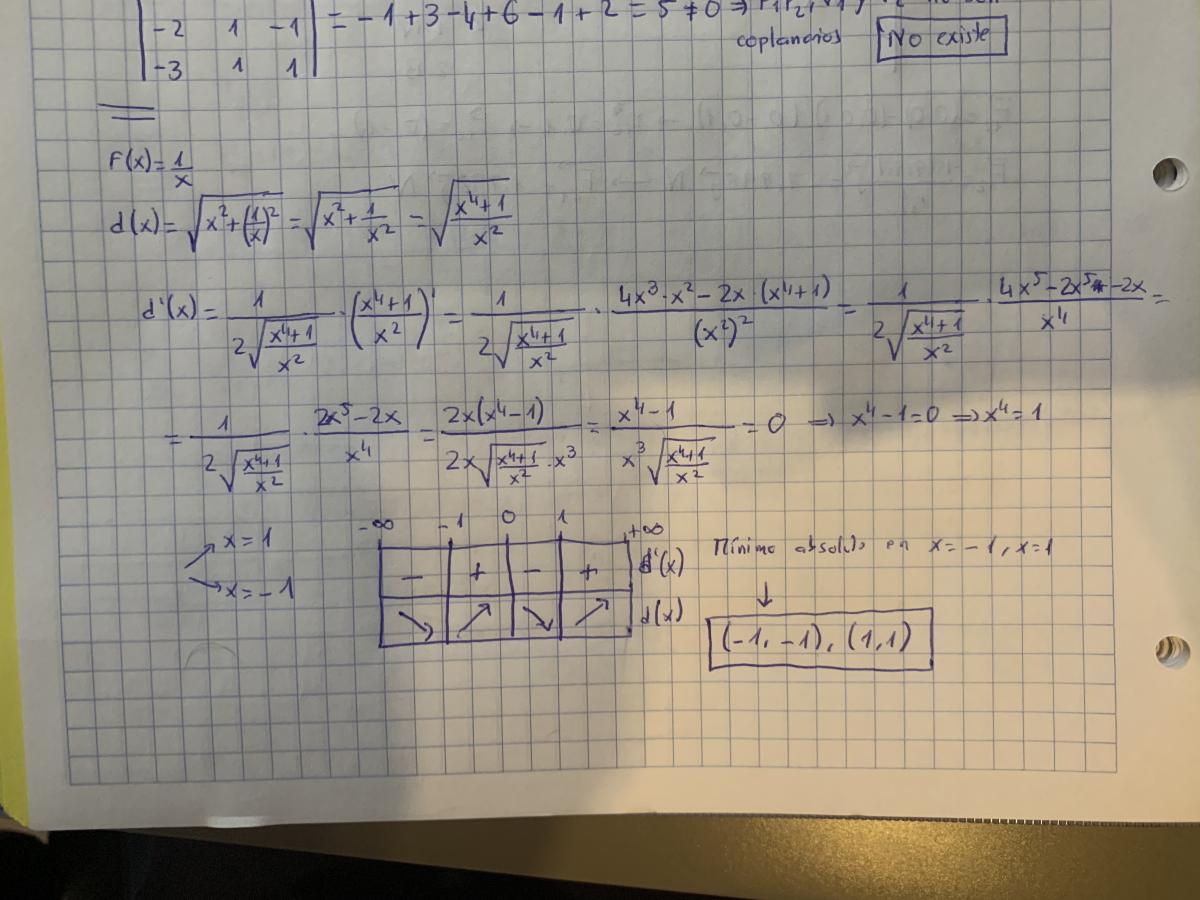 | -2 1 -1 | = -1+3-4+6-1+2 = 5 ≠ 0 ⇒
-3 1 1
coplanarios No existe
F(x) = 1/x
d(x) = √(x²+(1/x)²) = √(x²+1/x²) = √((x⁴+1)/x²)
d'(x) = 1/(2√((x⁴+1)/x²)) · ((x⁴+1)/x²)' = 1/(2√((x⁴+1)/x²)) · (4x³·x²-2x·(x⁴+1))/(x²)² = 1/(2√((x⁴+1)/x²)) · (4x⁵-2x⁵-2x)/x⁴ =
= 1/(2√((x⁴+1)/x²)) · (2x⁵-2x)/x⁴ = 2x(x⁴-1)/(2x√((x⁴+1)/x²)·x³) = (x⁴-1)/(x³√((x⁴+1)/x²)) = 0 ⇒ x⁴-1=0 ⇒ x⁴=1
-∞ -1 0 1 +∞
x=1
x=-1
- + - + d'(x)
↘ ↗ ↘ ↗ d(x)
Mínimo absoluto en x=-1, x=1
↓
(-1,-1), (1,1)